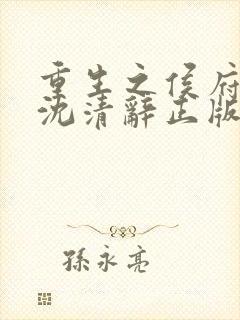 重生之侯府
沈清辭正版
孫永亮